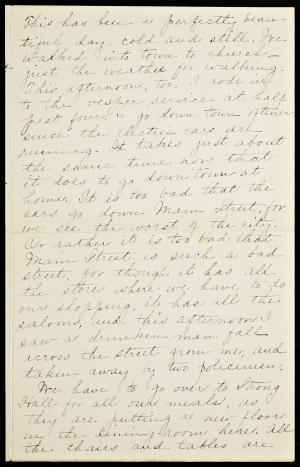 This has been a perfectly beau-
tiful day - cold and still. We
walked into town to church -
just the weather for walking.
This afternoon, too, I rode in
to the vesper service at half
past four. I go down town oftener
since the electric cars are
running. It takes just about
the same time now that
it does to go down town at
home. It is too bad that the
cars go down Main Street, for
we see the worst of the city.
Or rather it is too bad that
Main Street is such a bad
street, for though it has all
the stores where we have to do
our shopping, it has all the
saloons, and this afternoon I
saw a drunken man fall
across the street from me, and
taken away by two policemen.
We have to go over to Strong
Hall for all our meals, as
they are putting a new floor
in the dining-room here. All
the chairs and tables are